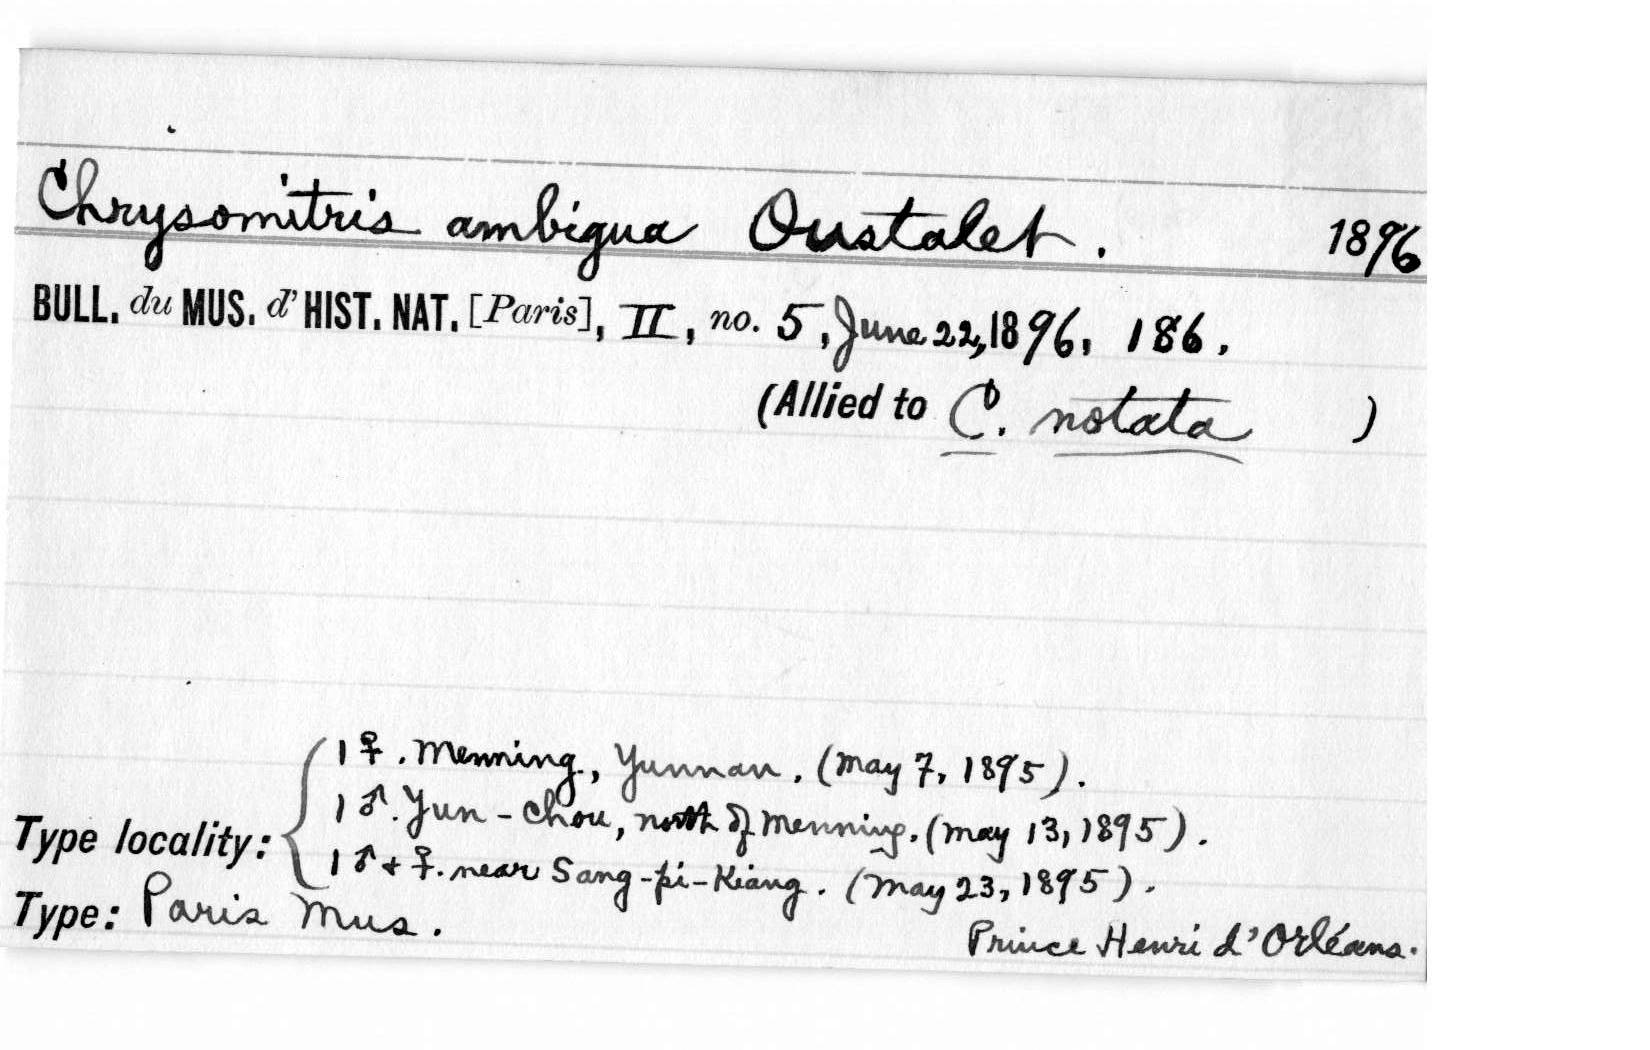 Chrysomitris ambigua Oustalet. 1896
BULL. du MUS. d' HIST. NAT. [Paris], II, no. 5, June 22, 1896, 186.
(Allied to C. notata )
Type locality:
1 ♀. Menning, Yunnan. (May 7, 1895).
1 ♂. Yun-chou, north of Menning. (May 13, 1895).
1 ♂ + ♀. near Sang-pi-Kiang. (May 23, 1895).
Type: Paris Mus.
Prince Henri d'Orléans.